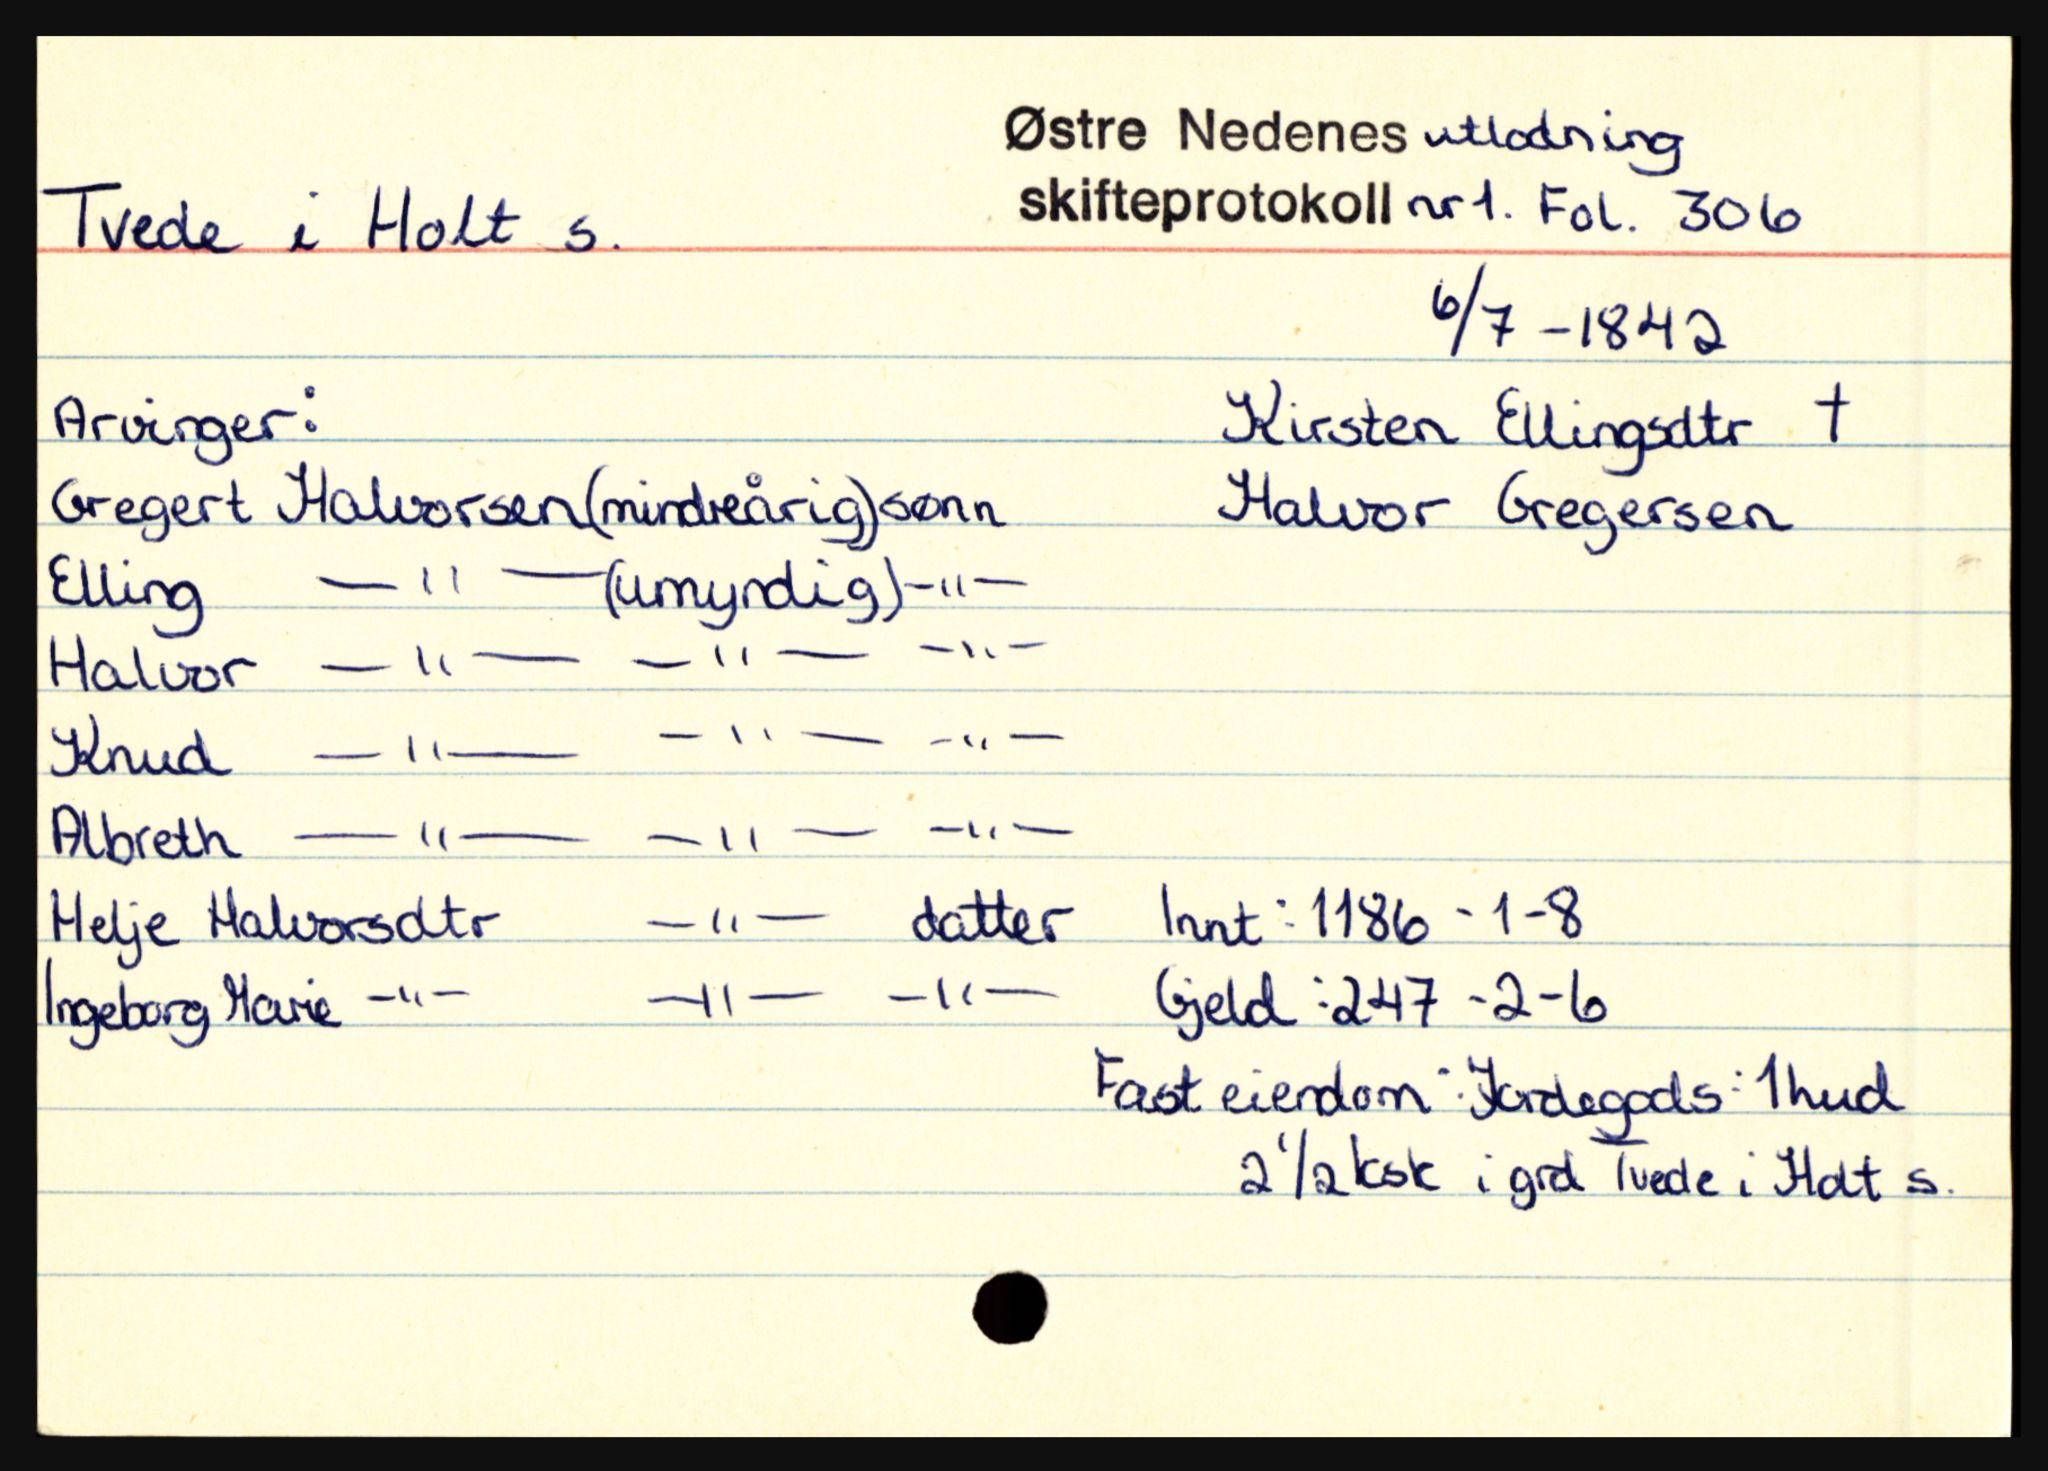 Østre Nedenes utlodning
Tvede i Holt s. skifteprotokoll nr 1. Fol. 306
6/7 - 1842
Arvinger: Kirsten Ellingsdtr †
Gregert Halvorsen (mindreårig) sønn Halvor Gregersen
Elling — " — (umyndig) - " -
Halvor — " — — " — - " -
Knud — " — — " — - " -
Albreth — " — — " — - " -
Helje Halvorsdtr — " — datter Innt: 1186 - 1 - 8
Ingeborg Marie - " - — " — — " — Gjeld: 247 - 2 - 6
Fast eiendom: Jordegods: 1 hud
2 1/2 ksk i grd Tvede i Holt s.